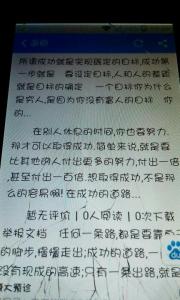 所谓成功就是实现既定的目标,成功第
一步就是 着设定目标,人和人的差距
就是目标的确定 一个目标你为什么
是穷人,是因为你没有富人的目标 你
的...
在别人休息的时间,你也着努力.
那才可以取得成功,简单来说,就是着
比其他的人付出更多的努力,付出一倍
,甚至付出一百倍.想取得成功,不是那
么的容易啊!在成功的道路...
暂无评价 10人阅读 10次下载
举报文档 任何一条路,都是着靠
的脚步,慢慢走出;成功的道路,一
没有现成的高速;只有一条出路,就是